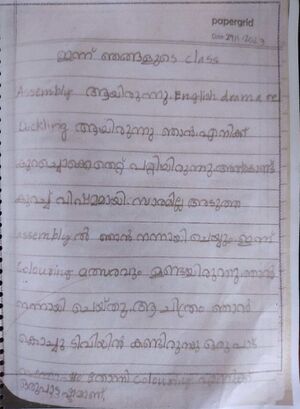 papergrid
Date: 29/11/2023
ഇന്ന് ഞങ്ങളുടെ class
Assembly ആയിരുന്നു. English drama
Duckling ആയിരുന്നു ഞാൻ. എനിക്ക്
കുറച്ചൊക്കെതെറ്റ് പറ്റിയിരുന്നു. അതുകൊണ്ട്
കുറച്ച് വിഷമമായി. സാരമില്ല അടുത്ത
assemblyൽ ഞാൻ നന്നായി ചെയ്യും. ഇന്ന്
Colouring മത്സരവും ഉണ്ടായിരുന്നു. ഞാൻ
നന്നായി ചെയ്തു. ആ ചിത്രം ഞാൻ
കൊച്ചു ടിവിയിൽ കണ്ടിരുന്നു ഒരുപാട്
തോന്നി Colouring എനിക്ക്
ഒരുപാട് ഇഷ്ടമാണ്.